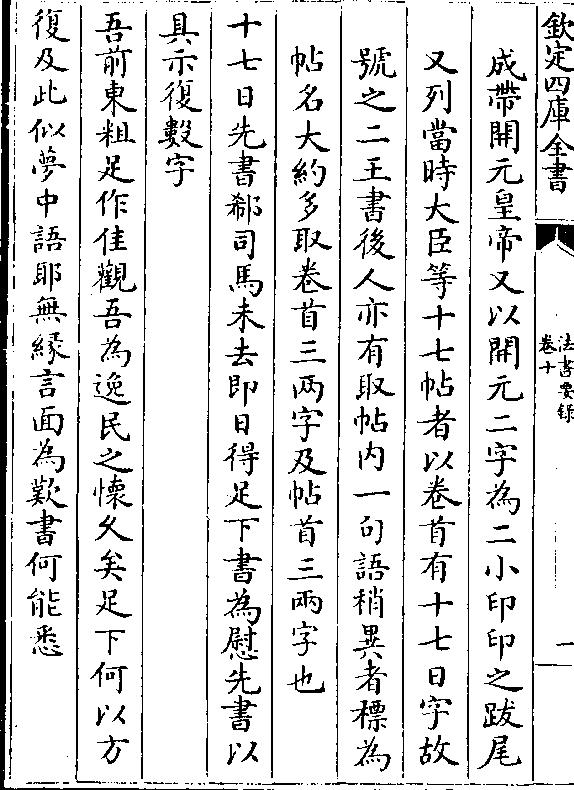 欽定四庫全書
法書要録
卷十
一
成帶開元皇帝又以開元二字為二小印印之跋尾
又列當時大臣等十七帖者以卷首有十七日字故
號之二王書後人亦有取帖内一句語稍異者標為
帖名大約多取卷首三兩字及帖首三兩字也
十七日先書郗司馬未去即日得足下書為慰先書以
具示復數字
吾前東粗足作佳觀吾為逸民之懐久矣足下何以方
復及此似夢中語耶無緣言面為歎書何能悉